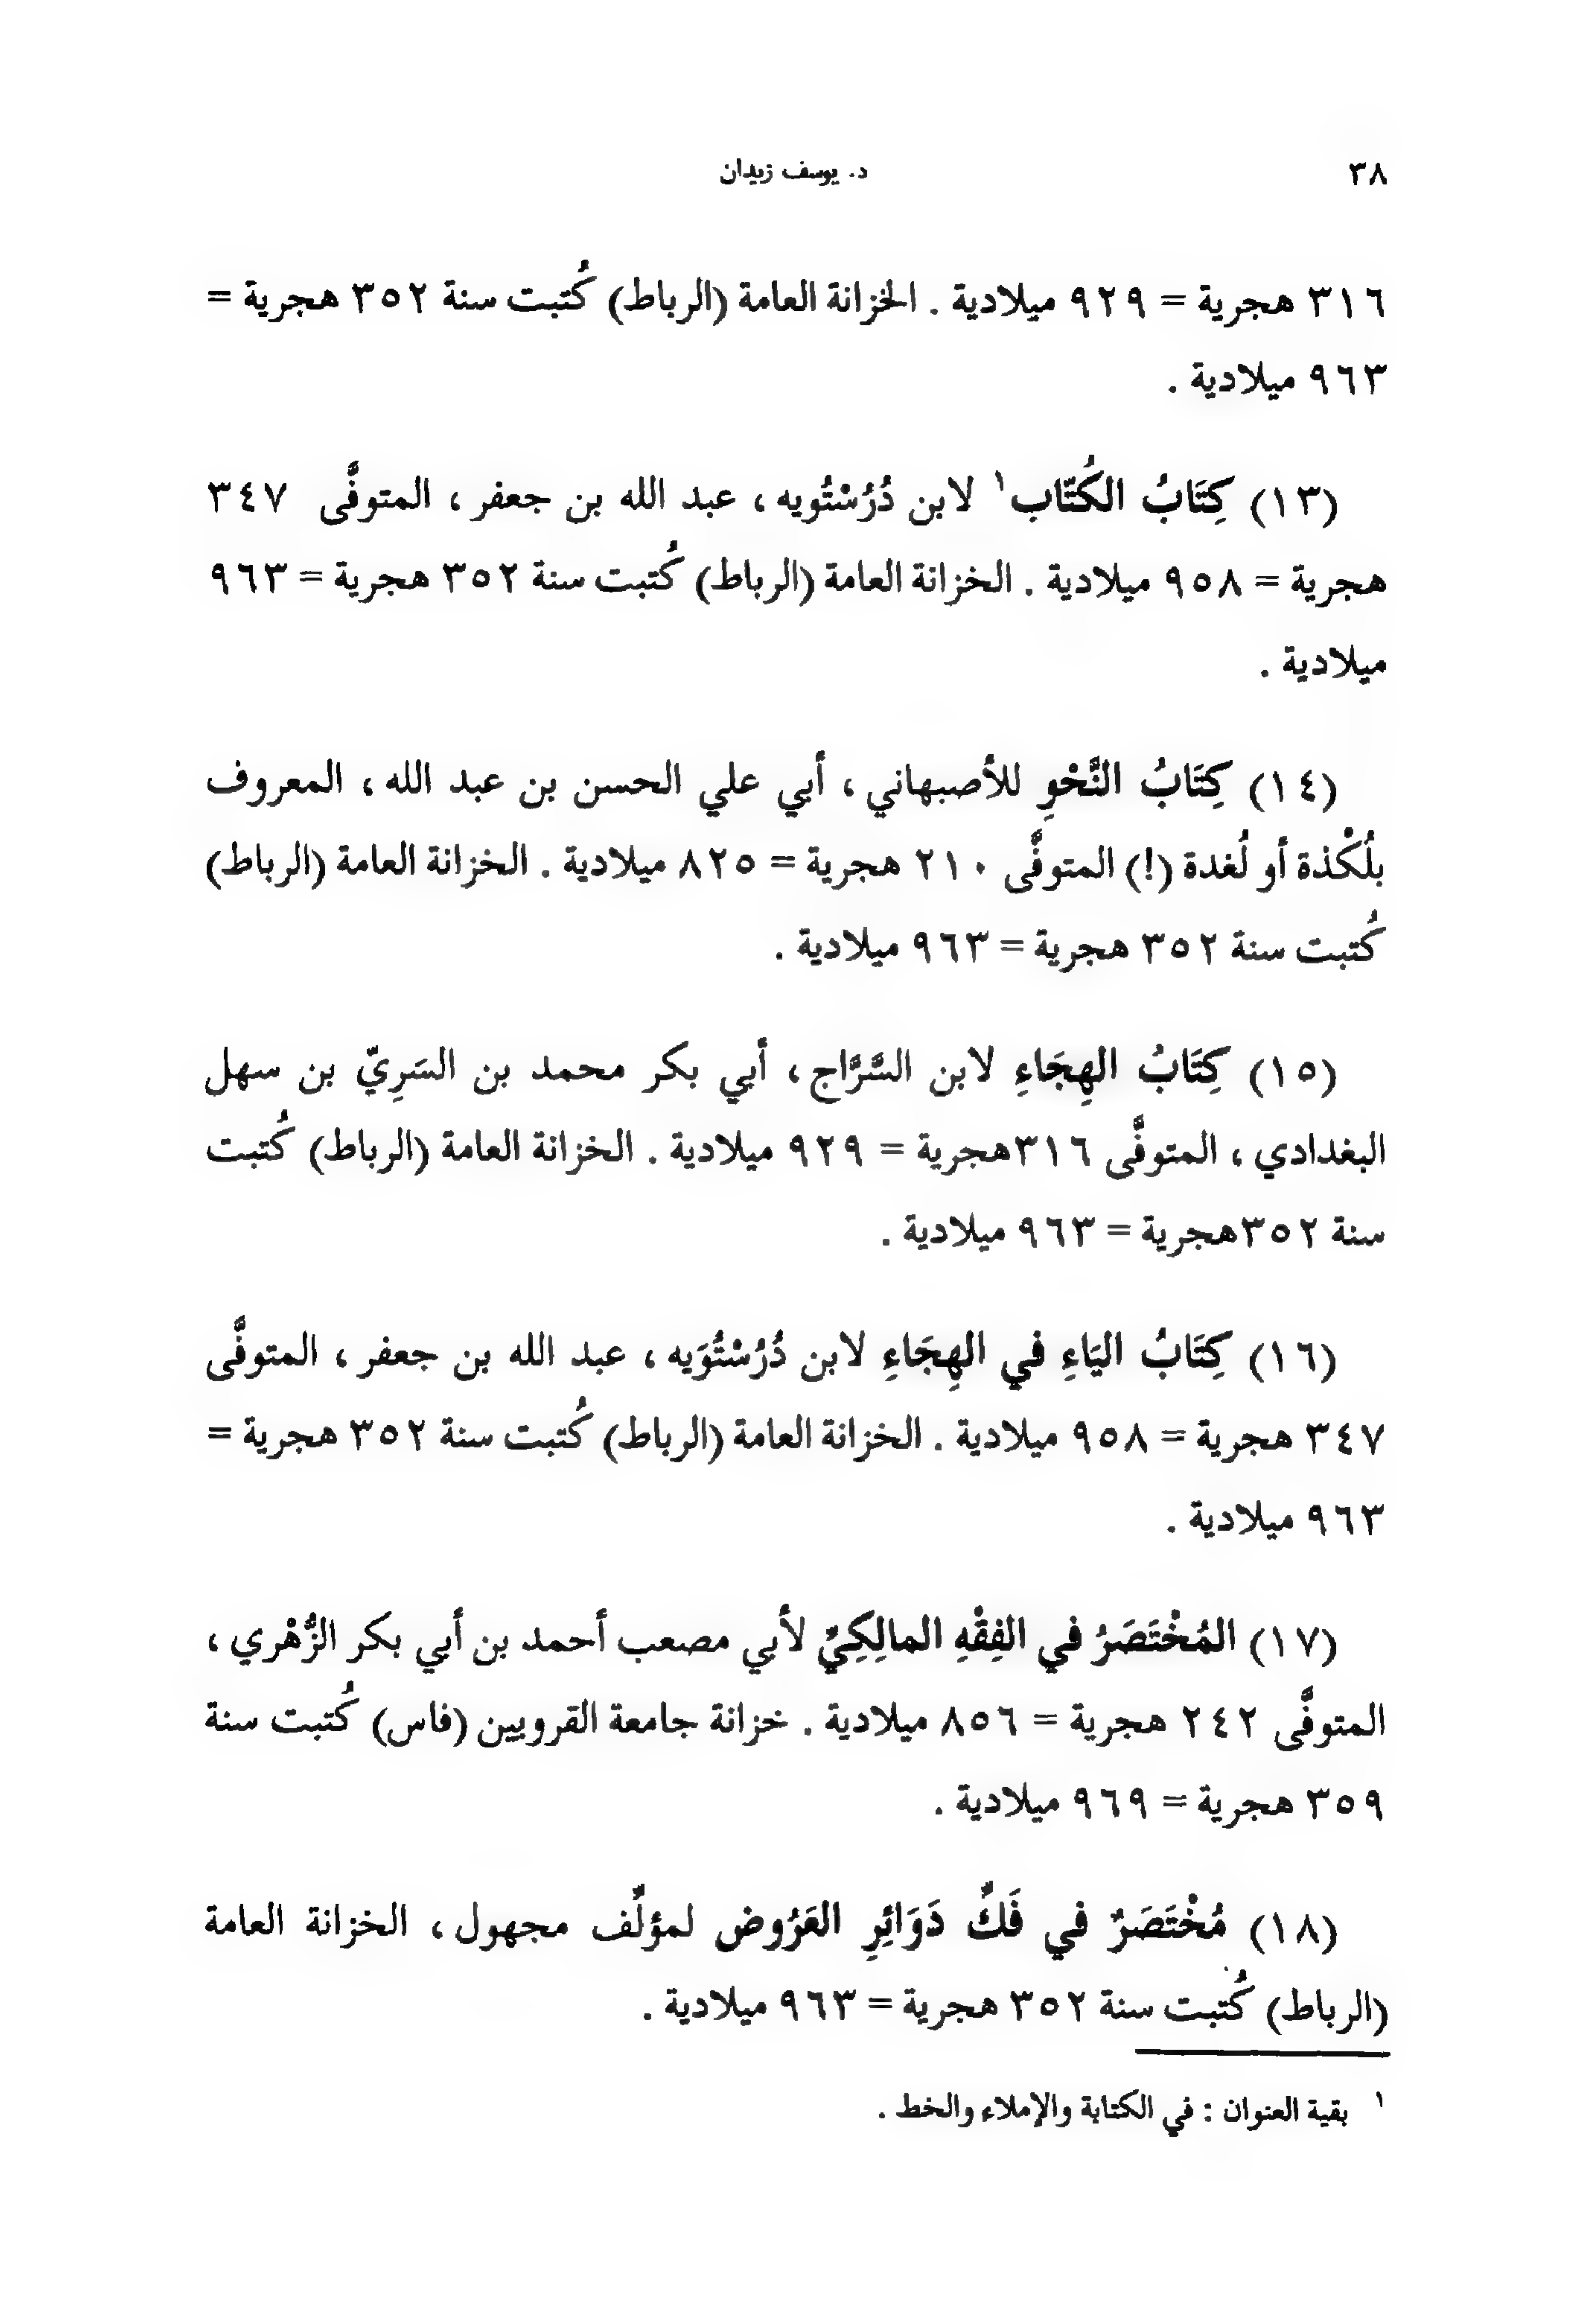 ٣٨
د. يوسف زيدان
٣١٦ هجرية = ٩٢٩ ميلادية . الخزانة العامة (الرباط) كُتبت سنة ٣٥٢ هجرية =
٩٦٣ ميلادية .
(١٣) كِتَابُ الكُتّاب١ لابن دُرُسْتُويه ، عبد الله بن جعفر ، المتوفَّى ٣٤٧
هجرية = ٩٥٨ ميلادية . الخزانة العامة (الرباط) كُتبت سنة ٣٥٢ هجرية = ٩٦٣
ميلادية .
(١٤) كِتَابُ النَّحْوِ للأصبهاني ، أبي علي الحسن بن عبد الله ، المعروف
بلُكْذة أو لُغدة (!) المتوفَّى ٢١٠ هجرية = ٨٢٥ ميلادية . الخزانة العامة (الرباط)
كُتبت سنة ٣٥٢ هجرية = ٩٦٣ ميلادية .
(١٥) كِتَابُ الهِجَاءِ لابن السَّرَّاج ، أبي بكر محمد بن السَرِيّ بن سهل
البغدادي ، المتوفَّى ٣١٦هجرية = ٩٢٩ ميلادية . الخزانة العامة (الرباط) كُتبت
سنة ٣٥٢هجرية = ٩٦٣ ميلادية .
(١٦) كِتَابُ اليَاءِ في الهِجَاءِ لابن دُرُسْتُوَيه ، عبد الله بن جعفر ، المتوفَّى
٣٤٧ هجرية = ٩٥٨ ميلادية . الخزانة العامة (الرباط) كُتبت سنة ٣٥٢ هجرية =
٩٦٣ ميلادية .
(١٧) المُخْتَصَرُ في الفِقْهِ المالِكِيِّ لأبي مصعب أحمد بن أبي بكر الزُّهْري ،
المتوفَّى ٢٤٢ هجرية = ٨٥٦ ميلادية . خزانة جامعة القرويين (فاس) كُتبت سنة
٣٥٩ هجرية = ٩٦٩ ميلادية .
(١٨) مُخْتَصَرٌ في فَكِّ دَوَائِرِ العَرُوض لمؤلِّف مجهول ، الخزانة العامة
(الرباط) كُتبت سنة ٣٥٢ هجرية = ٩٦٣ ميلادية .
١ بقية العنوان : في الكتابة والإملاء والخط .